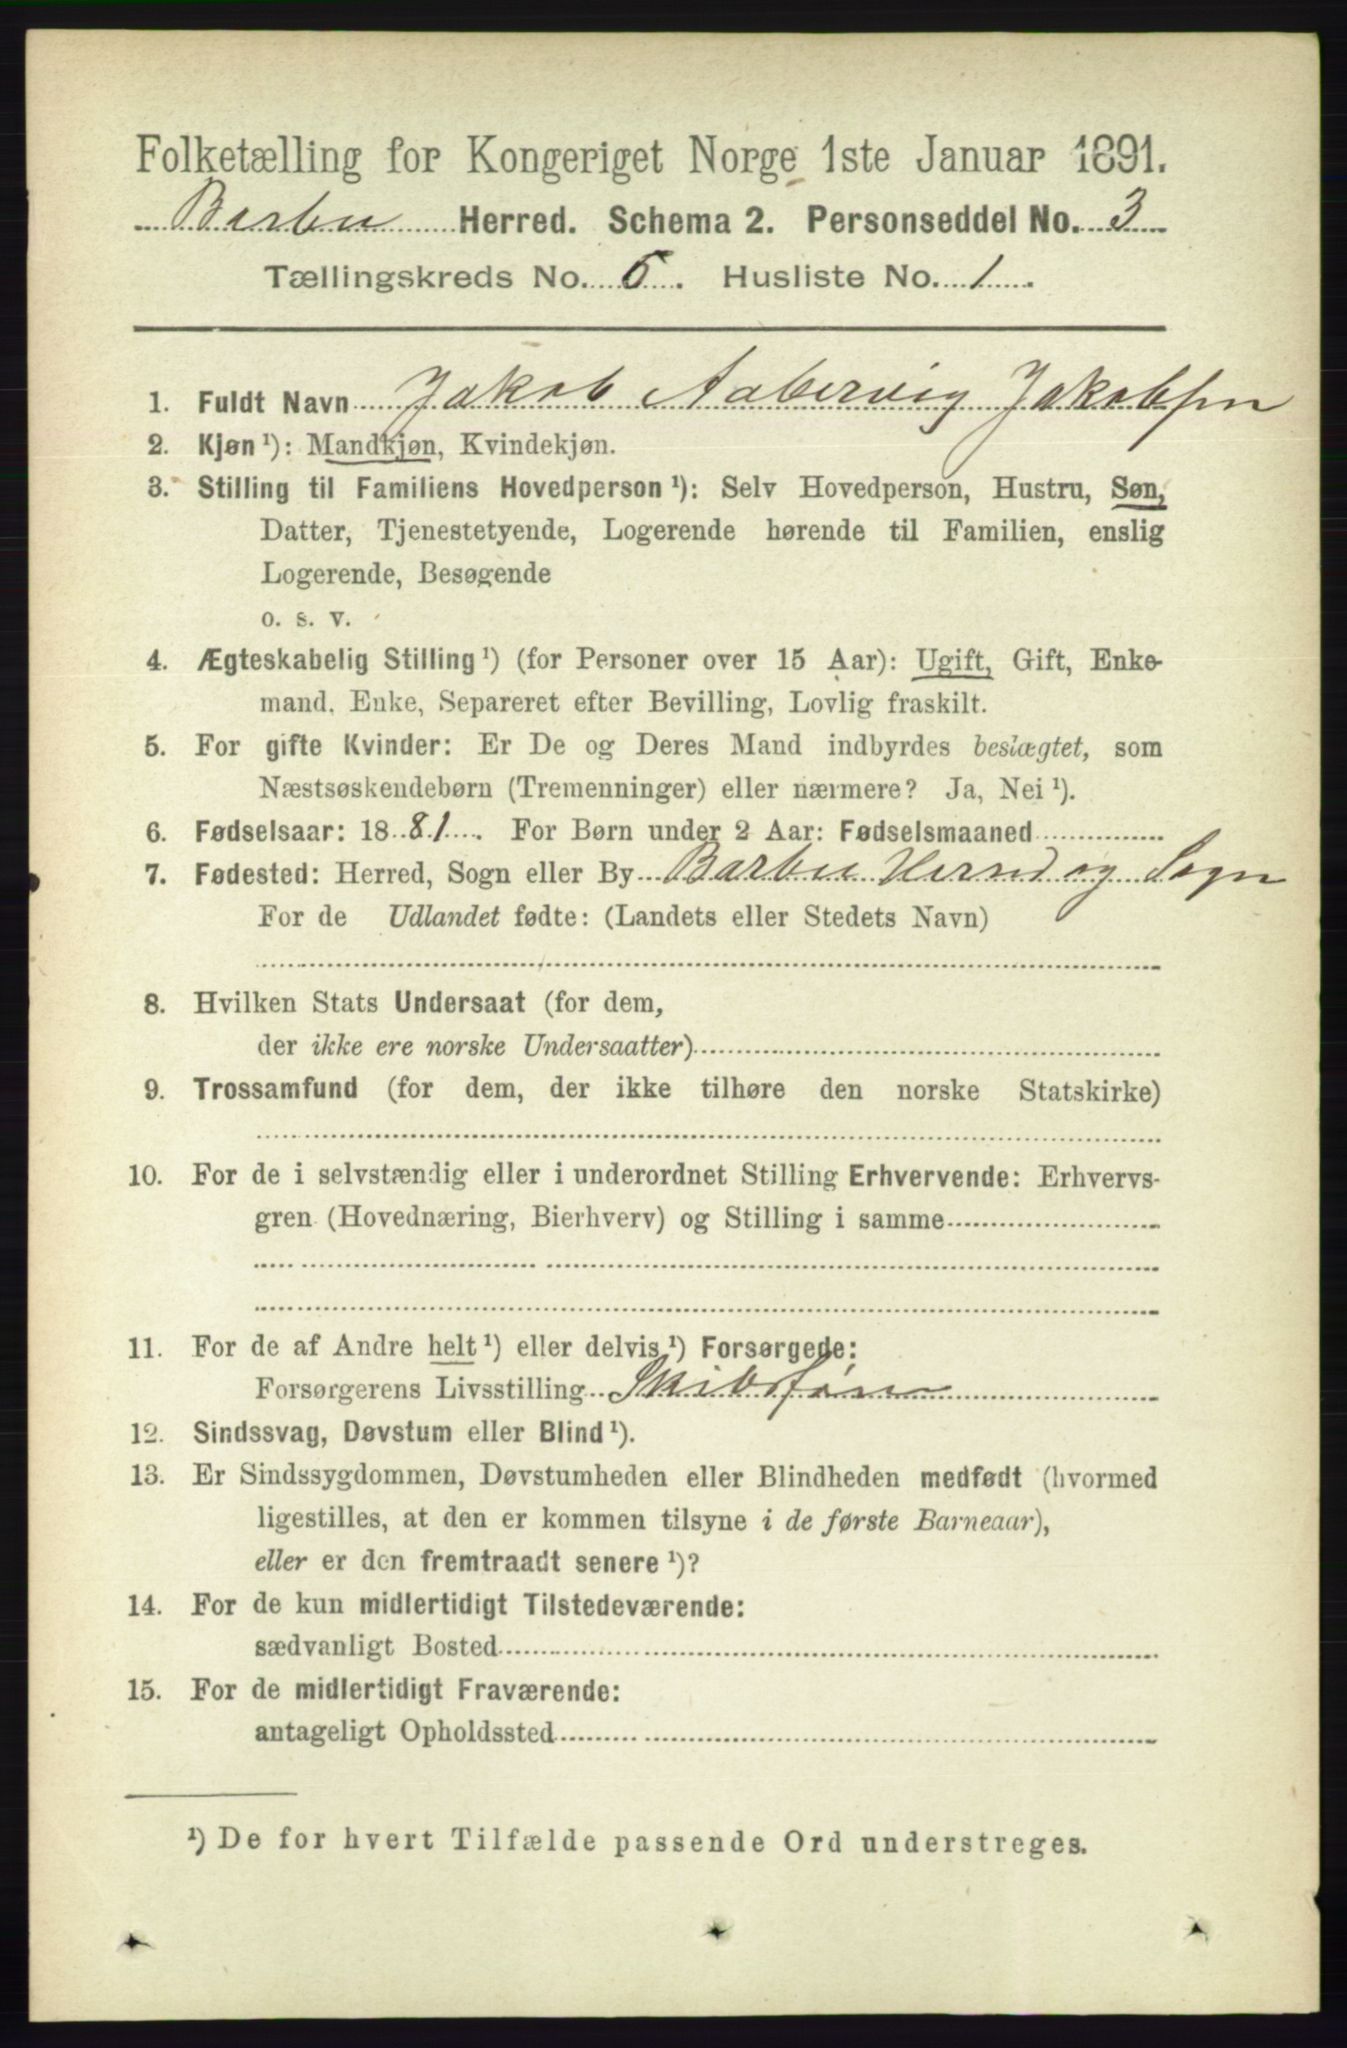 Folketælling for Kongeriget Norge 1ste Januar 1891.
Barbu Herred. Schema 2. Personseddel No. 3
Tællingskreds No. 5. Husliste No. 1.
1. Fuldt Navn Jakob Aabervig Jakobsen
2. Kjøn ¹): Mandkjøn, Kvindekjøn.
3. Stilling til Familiens Hovedperson ¹): Selv Hovedperson, Hustru, Søn,
Datter, Tjenestetyende, Logerende hørende til Familien, enslig
Logerende, Besøgende
o. s. v.
4. Ægteskabelig Stilling ¹) (for Personer over 15 Aar): Ugift, Gift, Enke-
mand, Enke, Separeret efter Bevilling, Lovlig fraskilt.
5. For gifte Kvinder: Er De og Deres Mand indbyrdes beslægtet, som
Næstsøskendebørn (Tremenninger) eller nærmere? Ja, Nei ¹).
6. Fødselsaar: 1881. For Børn under 2 Aar: Fødselsmaaned
7. Fødested: Herred, Sogn eller By Barbu Herred og Sogn
For de Udlandet fødte: (Landets eller Stedets Navn)
8. Hvilken Stats Undersaat (for dem,
der ikke ere norske Undersaatter)
9. Trossamfund (for dem, der ikke tilhøre den norske Statskirke)
10. For de i selvstændig eller i underordnet Stilling Erhvervende: Erhvervs-
gren (Hovednæring, Bierhverv) og Stilling i samme
11. For de af Andre helt ¹) eller delvis ¹) Forsørgede:
Forsørgerens Livsstilling Skibsfører
12. Sindssvag, Døvstum eller Blind ¹).
13. Er Sindssygdommen, Døvstumheden eller Blindheden medfødt (hvormed
ligestilles, at den er kommen tilsyne i de første Barneaar),
eller er den fremtraadt senere ¹)?
14. For de kun midlertidigt Tilstedeværende:
sædvanligt Bosted
15. For de midlertidigt Fraværende:
antageligt Opholdssted
¹) De for hvert Tilfælde passende Ord understreges.